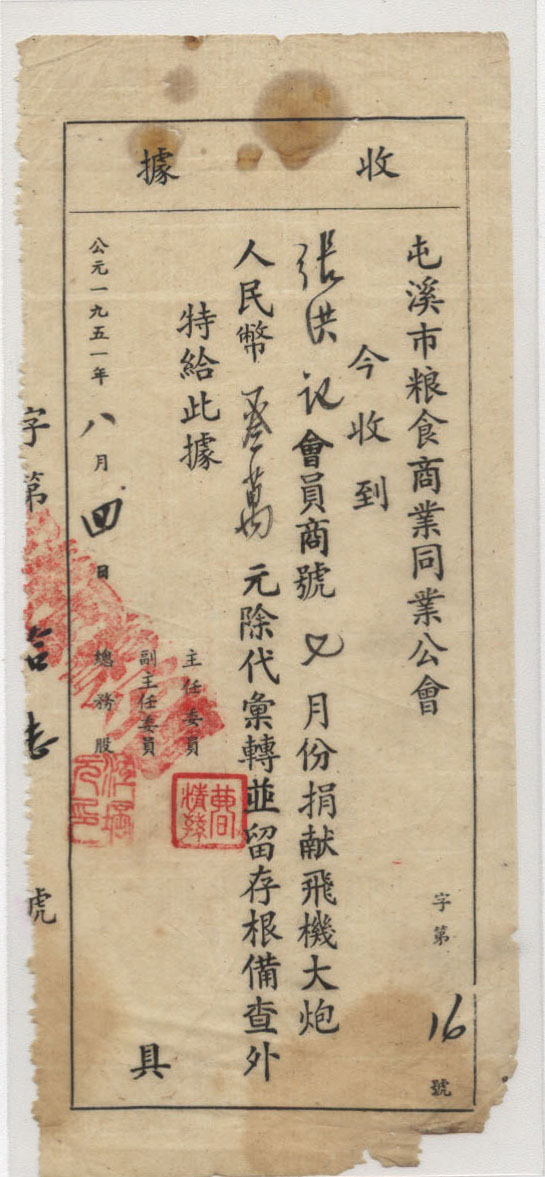 收據
屯溪市粮食商業同業公會
字第16號
今收到
張洪記會員商號 七 月份捐献飛機大炮
人民幣叁萬元除代彙轉並留存根備查外
特給此據
主任委員
副主任委員
總務股
具
公元一九五一年八月四日
字第
號